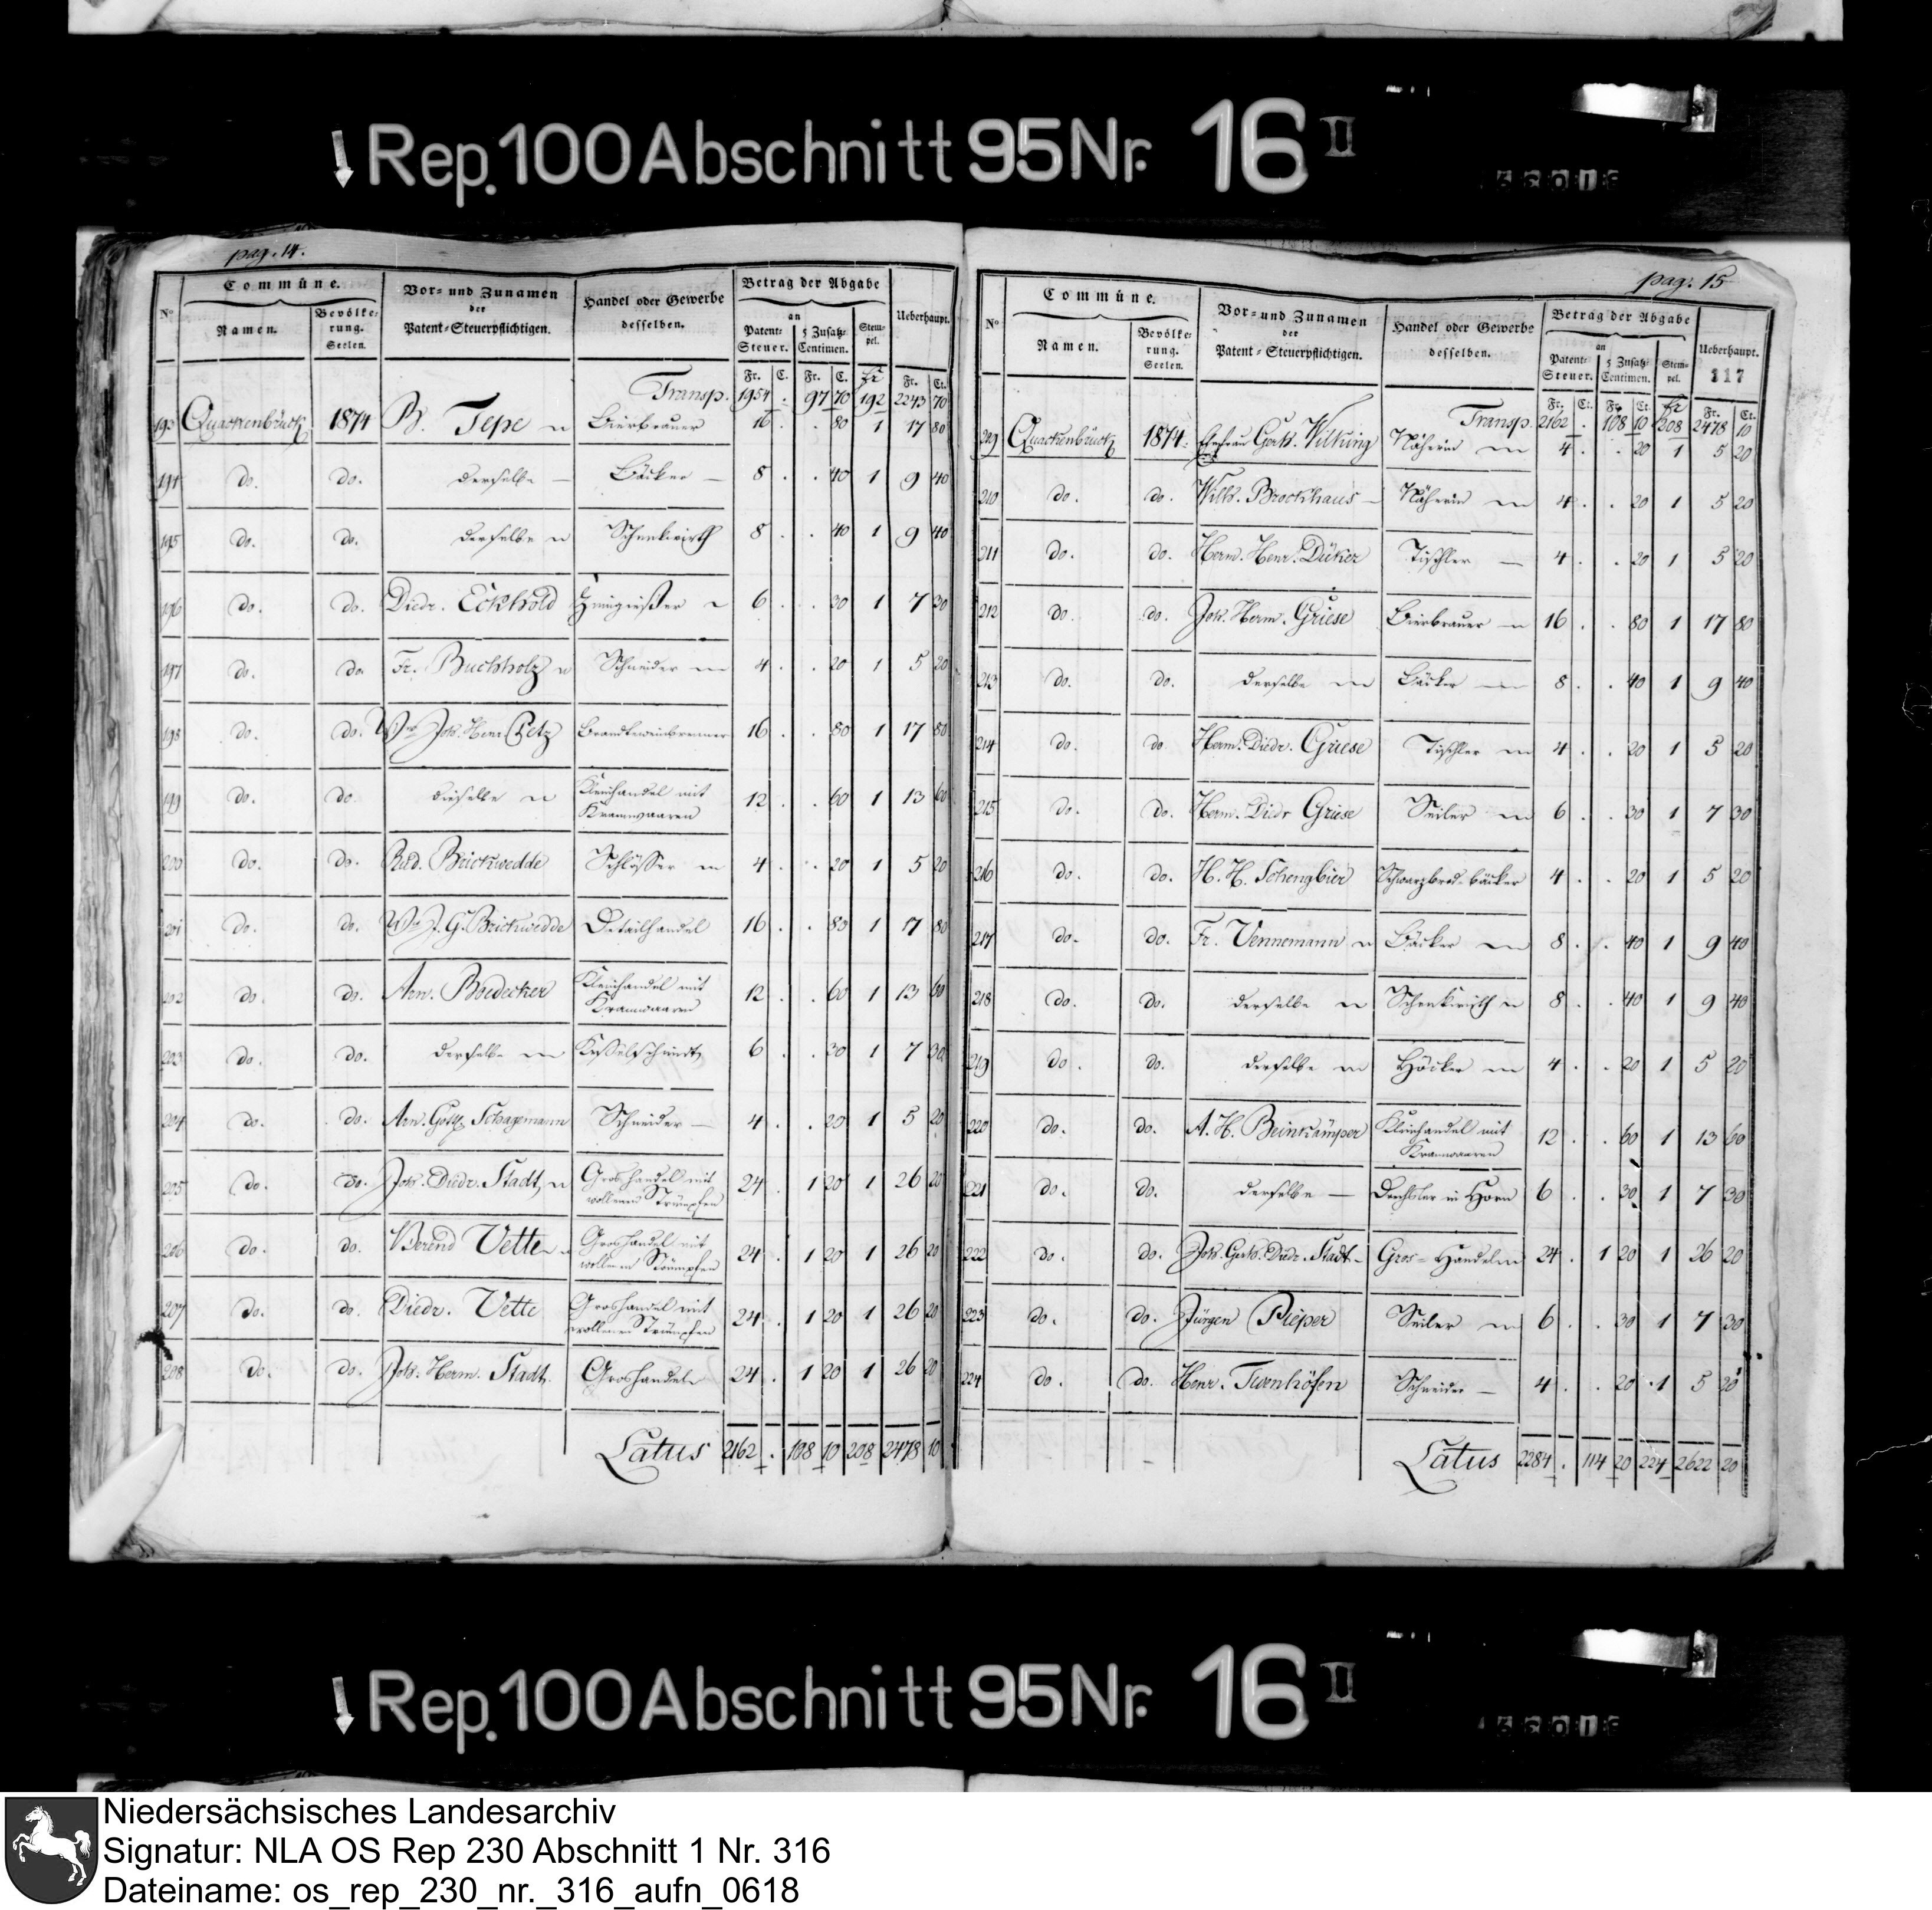 Rep. 100 Abschnitt 95 Nr. 16 II
pag. 14.
No
Commüne.
Namen.
Bevölke=
rung.
Seelen.
Vor= und Zunamen
der
Patent=Steuerpflichtigen.
Handel oder Gewerbe
desselben.
Betrag der Abgabe
an
Patent=
Steuer.
5 Zusatz=
Centimen.
Stem=
pel.
Ueberhaupt.
Fr. C. Fr. C. Fr Fr. Ct.
Transp. 1954 . 97 70 192 2243 70
193 Quackenbrück 1874 B. Tepe Bierbrauer 16 . . 80 1 17 80
194 do. do. derselbe Bäcker 8 . . 40 1 9 40
195 do. do. derselbe Schenkwirth 8 . . 40 1 9 40
196 do. do. Diedr. Eckhold Zinngießer 6 . . 30 1 7 30
197 do. do. Fr. Buchholz Schneider 4 . . 20 1 5 20
198 do. do. Wwe Joh. Henr. Brandtweinbrenner 16 . . 80 1 17 80
199 do. do. dieselbe Kleinhandel mit
Kramwaaren 12 . . 60 1 13 60
200 do. do. Rud. Brickwedde Schlösser 4 . . 20 1 5 20
201 do. do. Wwe J. G. Brickwedde Detailhandel 16 . . 80 1 17 80
202 do. do. Arn. Boedecker Kleinhandel mit
Kramwaaren 12 . . 60 1 13 60
203 do. do. derselbe Keßelschmidt 6 . . 30 1 7 30
204 do. do. Arn. Schagemann Schneider 4 . . 20 1 5 20
205 do. do. Joh. Diedr. Stadt Groshandel mit
wollenen Strümpfen 24 . 1 20 1 26 20
206 do. do. Berend Vette Groshandel mit
wollenen Strümpfen 24 . 1 20 1 26 20
207 do. do. Diedr. Vette Groshandel mit
wollenen Strümpfen 24 . 1 20 1 26 20
208 do. do. Joh. Herm. Stadt Groshandel 24 . 1 20 1 26 20
Latus 2162 . 108 10 208 2478 10
pag. 15
No
Commüne.
Namen.
Bevölke=
rung.
Seelen.
Vor= und Zunamen
der
Patent=Steuerpflichtigen.
Handel oder Gewerbe
desselben.
Betrag der Abgabe
an
Patent=
Steuer.
5 Zusatz=
Centimen.
Stem=
pel.
Ueberhaupt.
117
Fr. Ct. Fr. Ct. Fr Fr. Ct.
Transp. 2162 . 108 10 208 2478 10
209 Quackenbrück 1874. Ehefrau Gerh. Wilking Näherin 4 . . 20 1 5 20
210 do. do. Wilh. Brockhaus Näherin 4 . . 20 1 5 20
211 do. do. Herm. Henr. Düker Tischler 4 . . 20 1 5 20
212 do. do. Joh. Herm. Griese Bierbrauer 16 . . 80 1 17 80
213 do. do. derselbe Bäcker 8 . . 40 1 9 40
214 do. do. Herm. Diedr. Griese Tischler 4 . . 20 1 5 20
215 do. do. Herm. Diedr Griese Seiler 6 . . 30 1 7 30
216 do. do. H. H. Schengbier Schwarzbrod=bäcker 4 . . 20 1 5 20
217 do. do. Fr. Vennemann Bäcker 8 . . 40 1 9 40
218 do. do. derselbe Schenkwirth 8 . . 40 1 9 40
219 do. do. derselbe Höcker 4 . . 20 1 5 20
220 do. do. A. H. Beinkämper Kleinhandel mit
Kramwaaren 12 . . 60 1 13 60
221 do. do. derselbe Drechsler in Horn 6 . . 30 1 7 30
222 do. do. Joh. Gerh. Diedr. Stadt Gros=Handel 24 . 1 20 1 26 20
223 do. do. Jürgen Pieper Seiler 6 . . 30 1 7 30
224 do. do. Henr. Twenhöfen Schneider 4 . . 20 1 5 20
Latus 2284 . 114 20 224 2622 20
Rep. 100 Abschnitt 95 Nr. 16 II
Niedersächsisches Landesarchiv
Signatur: NLA OS Rep 230 Abschnitt 1 Nr. 316
Dateiname: os_rep_230_nr._316_aufn_0618